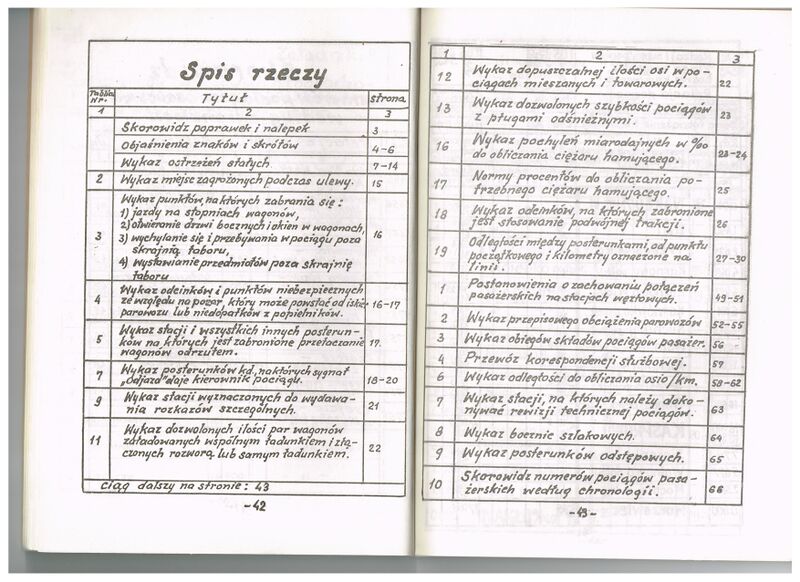 Spis rzeczy
Tablica Nr.
Tytuł
strona
1 2 3
Skorowidz poprawek i nalepek 3
Objaśnienia znaków i skrótów 4-6
Wykaz ostrzeżeń stałych 7-14
2 Wykaz miejsc zagrożonych podczas ulewy. 15
Wykaz punktów, na których zabrania się:
1) jazdy na stopniach wagonów,
2) otwieranie drzwi bocznych i okien w wagonach,
3 3) wychylanie się i przebywania w pociągu poza 16
skrajnią taboru,
4) wystawianie przedmiotów poza skrajnię
taboru
Wykaz odcinków i punktów niebezpiecznych
4 ze względu na pożar, który może powstać od iskier 16-17
parowozu lub niedopałków z popielników.
Wykaz stacji i wszystkich innych posterun-
5 ków na których jest zabronione przetaczanie 17.
wagonów odrzutem.
7 Wykaz posterunków kd, na których sygnał
„Odjazd" daje kierownik pociągu. 18-20
9 Wykaz stacji wyznaczonych do wydawa-
nia rozkazów szczególnych. 21
Wykaz dozwolonych ilości par wagonów
11 załadowanych wspólnym ładunkiem i złą- 22
czonych rozworą lub samym ładunkiem.
ciąg dalszy na stronie: 43
-42
1 2 3
12 Wykaz dopuszczalnej ilości osi w po-
ciągach mieszanych i towarowych. 22
13 Wykaz dozwolonych szybkości pociągów
z pługami odśnieżnymi. 23
16 Wykaz pochyleń miarodajnych w ‰
do obliczania ciężaru hamującego. 23-24
17 Normy procentów do obliczania po-
trzebnego ciężaru hamującego. 25
18 Wykaz odcinków, na których zabronione
jest stosowanie podwójnej trakcji. 26
Odległości między posterunkami, od punktu
19 początkowego i kilometry oznaczone na 27-30
linii.
1 Postanowienia o zachowaniu połączeń
pasażerskich na stacjach węzłowych. 49-51
2 Wykaz przepisowego obciążenia parowozów 52-55
3 Wykaz obiegów składów pociągów pasażer. 56
4 Przewóz korespondencji służbowej. 57
6 Wykaz odległości do obliczania osio/km. 58-62
7 Wykaz stacji, na których należy doko-
nywać rewizji technicznej pociągów. 63
8 Wykaz bocznic szlakowych. 64
9 Wykaz posterunków odstępowych. 65
10 Skorowidz numerów pociągów pasa-
żerskich według chronologii. 66
-43-